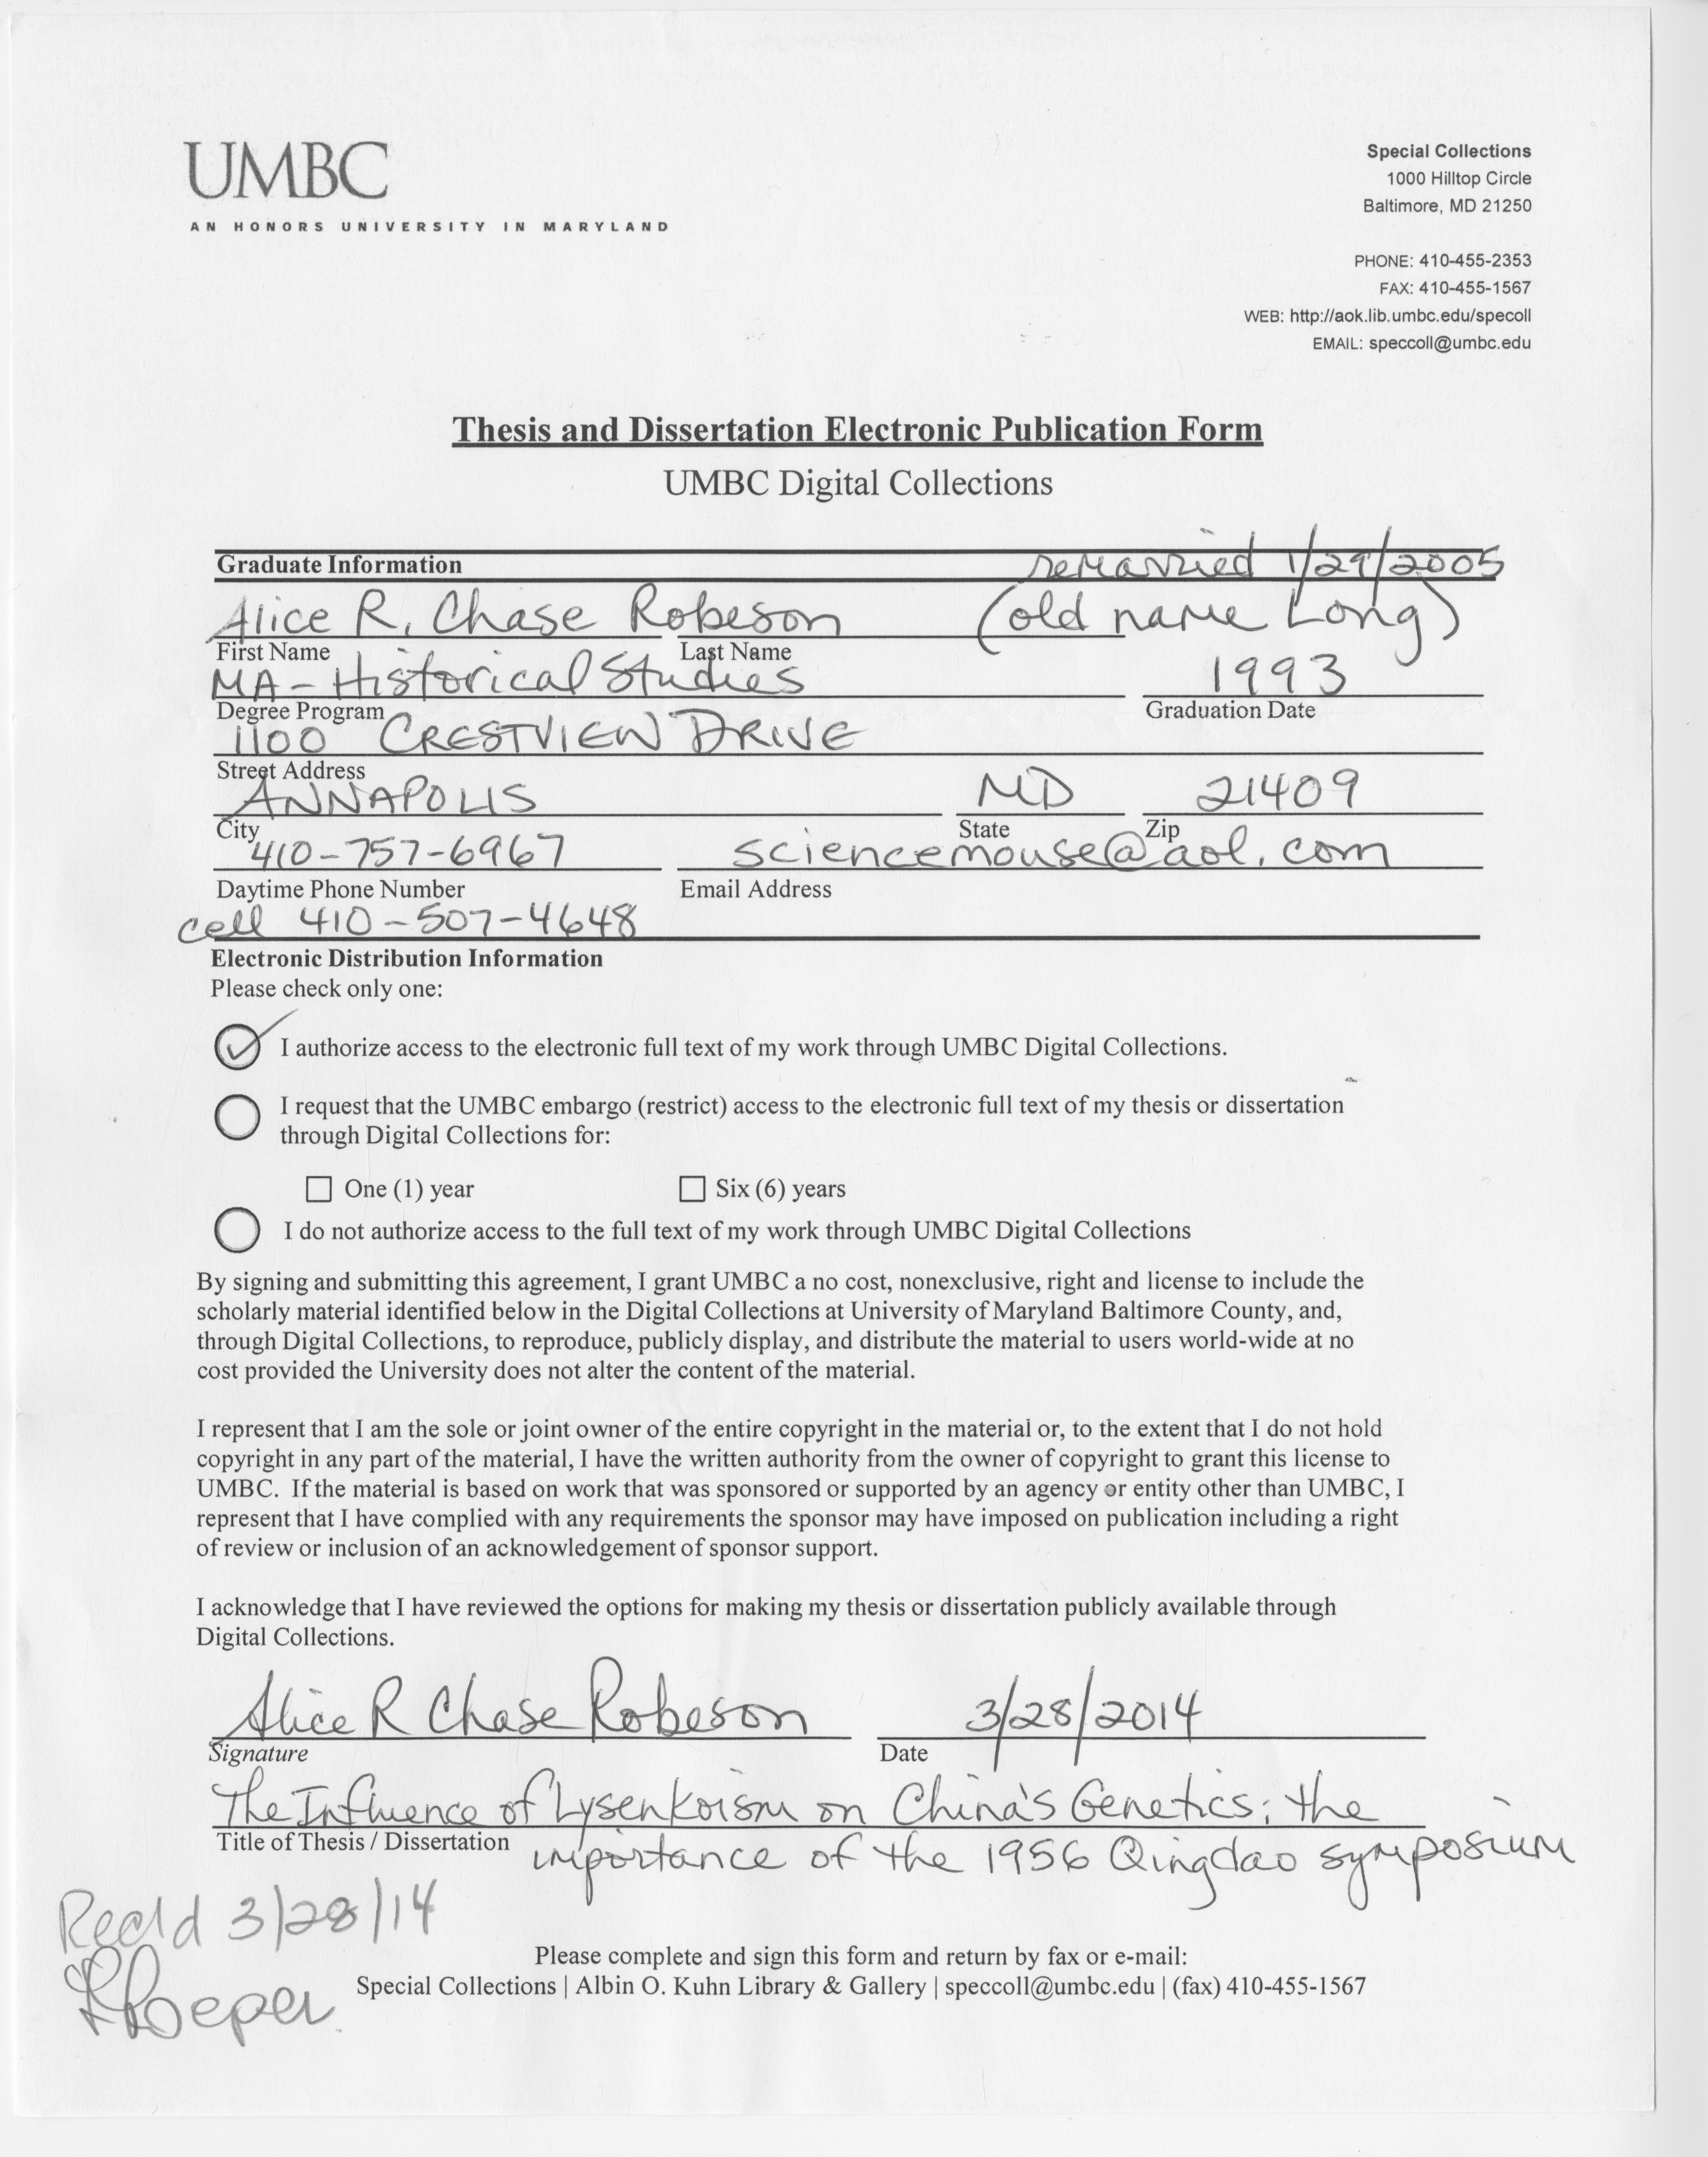 UMBC
AN HONORS UNIVERSITY IN MARYLAND
Special Collections
1000 Hilltop Circle
Baltimore, MD 21250
PHONE: 410-455-2353
FAX: 410-455-1567
WEB: http://aok.lib.umbc.edu/specoll
EMAIL: speccoll@umbc.edu
Thesis and Dissertation Electronic Publication Form
UMBC Digital Collections
Graduate Information remarried 1/29/2005
Alice R. Chase Robeson (old name Long)
First Name Last Name
MA - Historical Studies 1993
Degree Program Graduation Date
1100 CRESTVIEW DRIVE
Street Address
ANNAPOLIS MD 21409
City State Zip
410-757-6967 sciencemouse@aol.com
Daytime Phone Number Email Address
cell 410-507-4648
Electronic Distribution Information
Please check only one:
I authorize access to the electronic full text of my work through UMBC Digital Collections.
I request that the UMBC embargo (restrict) access to the electronic full text of my thesis or dissertation
through Digital Collections for:
One (1) year Six (6) years
I do not authorize access to the full text of my work through UMBC Digital Collections
By signing and submitting this agreement, I grant UMBC a no cost, nonexclusive, right and license to include the
scholarly material identified below in the Digital Collections at University of Maryland Baltimore County, and,
through Digital Collections, to reproduce, publicly display, and distribute the material to users world-wide at no
cost provided the University does not alter the content of the material.
I represent that I am the sole or joint owner of the entire copyright in the material or, to the extent that I do not hold
copyright in any part of the material, I have the written authority from the owner of copyright to grant this license to
UMBC. If the material is based on work that was sponsored or supported by an agency or entity other than UMBC, I
represent that I have complied with any requirements the sponsor may have imposed on publication including a right
of review or inclusion of an acknowledgement of sponsor support.
I acknowledge that I have reviewed the options for making my thesis or dissertation publicly available through
Digital Collections.
Alice R Chase Robeson 3/28/2014
Signature Date
The Influence of Lysenkoism on China's Genetics: the
Title of Thesis / Dissertation importance of the 1956 Qingdao symposium
Rec'd 3/28/14
Please complete and sign this form and return by fax or e-mail:
Special Collections | Albin O. Kuhn Library & Gallery | speccoll@umbc.edu | (fax) 410-455-1567